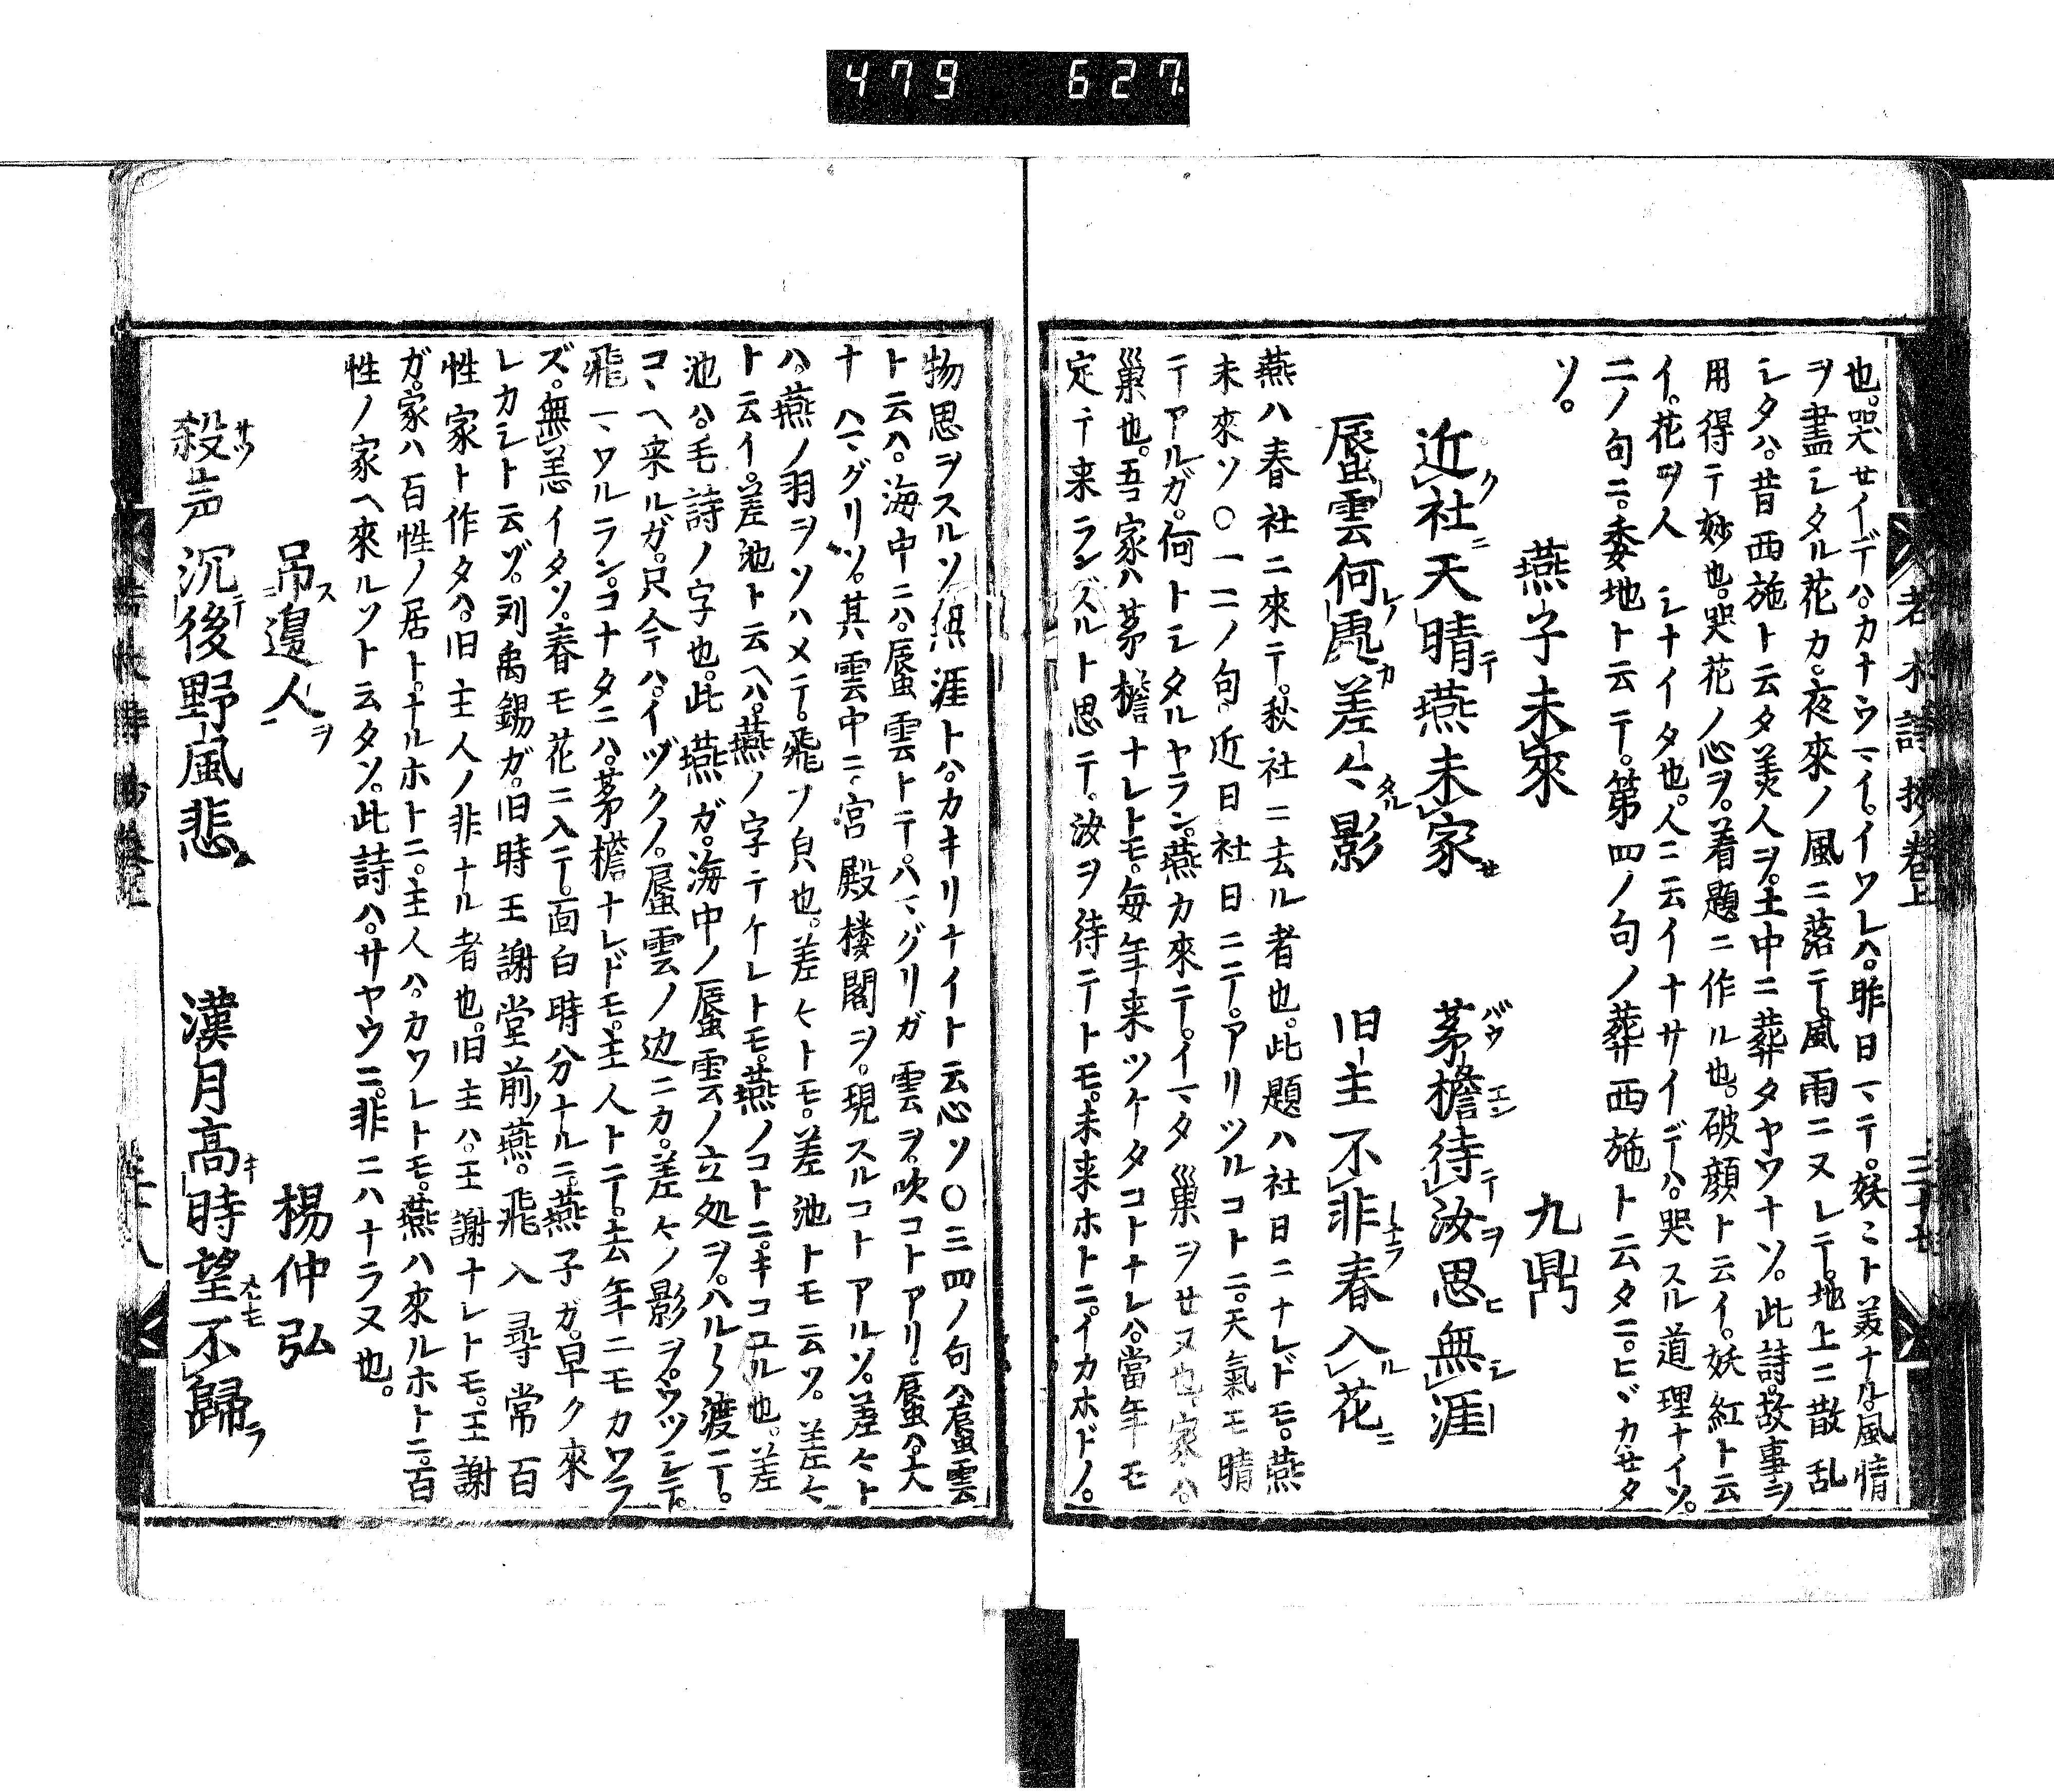 479 627
也。哭セイデハ。カナウマイ。イワレハ。昨日マテ。妖ミト美ナル風情
ヲ盡シタル花カ。夜來ノ風ニ落テ。風雨ニヌレテ。地上ニ散乱
シタハ。昔西施ト云タ美人ヲ。土中ニ葬タヤウナソ。此詩。故事ヲ
用得テ妙也。哭花ノ心ヲ。着題ニ作ル也。破顔ト云イ。妖紅ト云
イ。花ヲ人シナイタ也。人ニ云イナサイデハ。哭スル道理ナイソ。
二ノ句ニ。委地ト云テ。第四ノ句ノ葬西施ト云タニ。ヒヾカセタ
ソ。
燕子未來 九鼎
近社天晴燕未家 茅檐待汝思無涯
蜃雲何處差〻影 旧主不非春入花
燕ハ春社ニ來テ。秋社ニ去ル者也。此題ハ社日ニナレドモ。燕
未來ソ〇一二ノ句。近日社日ニテ。アリツルコトニ。天氣モ晴
テアルガ。何トシタルヤラン。燕カ來テ。イマタ巢ヲセヌ也。家ハ。
巢也。吾家ハ茅檐ナレトモ。毎年来ツケタコトナレハ。當年モ
定テ来ランズルト思テ。汝ヲ待テトモ。未来ホトニ。イカホドノ。
物思ヲスルソ無涯トハ。カキリナイト云心ソ〇三四ノ句ハ蜃雲
ト云ハ。海中ニハ。蜃雲トテ。ハマグリガ雲ヲ。吹コトアリ。蜃ハ。大
ナハマグリソ。其雲中ニ。宮殿楼閣ヲ。現スルコトアルソ。差〻ト
ハ。燕ノ羽ヲソハメテ。飛ブ皃也。差〻トモ。差池トモ云ソ。差〻
ト云イ。差池ト云ヘハ。燕ノ字テケレトモ。燕ノコトニ。キコユル也。差
池ハ。毛詩ノ字也。此燕ガ。海中ノ蜃雲ノ立処ヲ。ハル〱渡テ。
コヽヘ来ルガ。只今ハ。イヅクノ。蜃雲ノ辺ニカ。差〻ノ影ヲ。ウツシテ。
飛マワルラン。コナタニハ。茅檐ナレドモ。主人トテ。去年ニモカワラ
ズ。無恙イタソ。春モ花ニ入テ。面白時分ナルニ。燕子ガ。早ク來
レカシト云ゾ。刘禹錫ガ。旧時王謝堂前燕。飛入尋常百
性家ト作タハ。旧主人ノ非ナル者也。旧主ハ。王謝ナレトモ。王謝
ガ。家ハ百性ノ居ト。ナルホトニ。主人ハ。カワレトモ。燕ハ來ルホトニ。百
性ノ家ヘ來ルソト云タソ。此詩ハ。サヤウニ。非ニハナラヌ也。
吊邉人 楊仲弘
殺声沉後野風悲 漢月高時望不歸